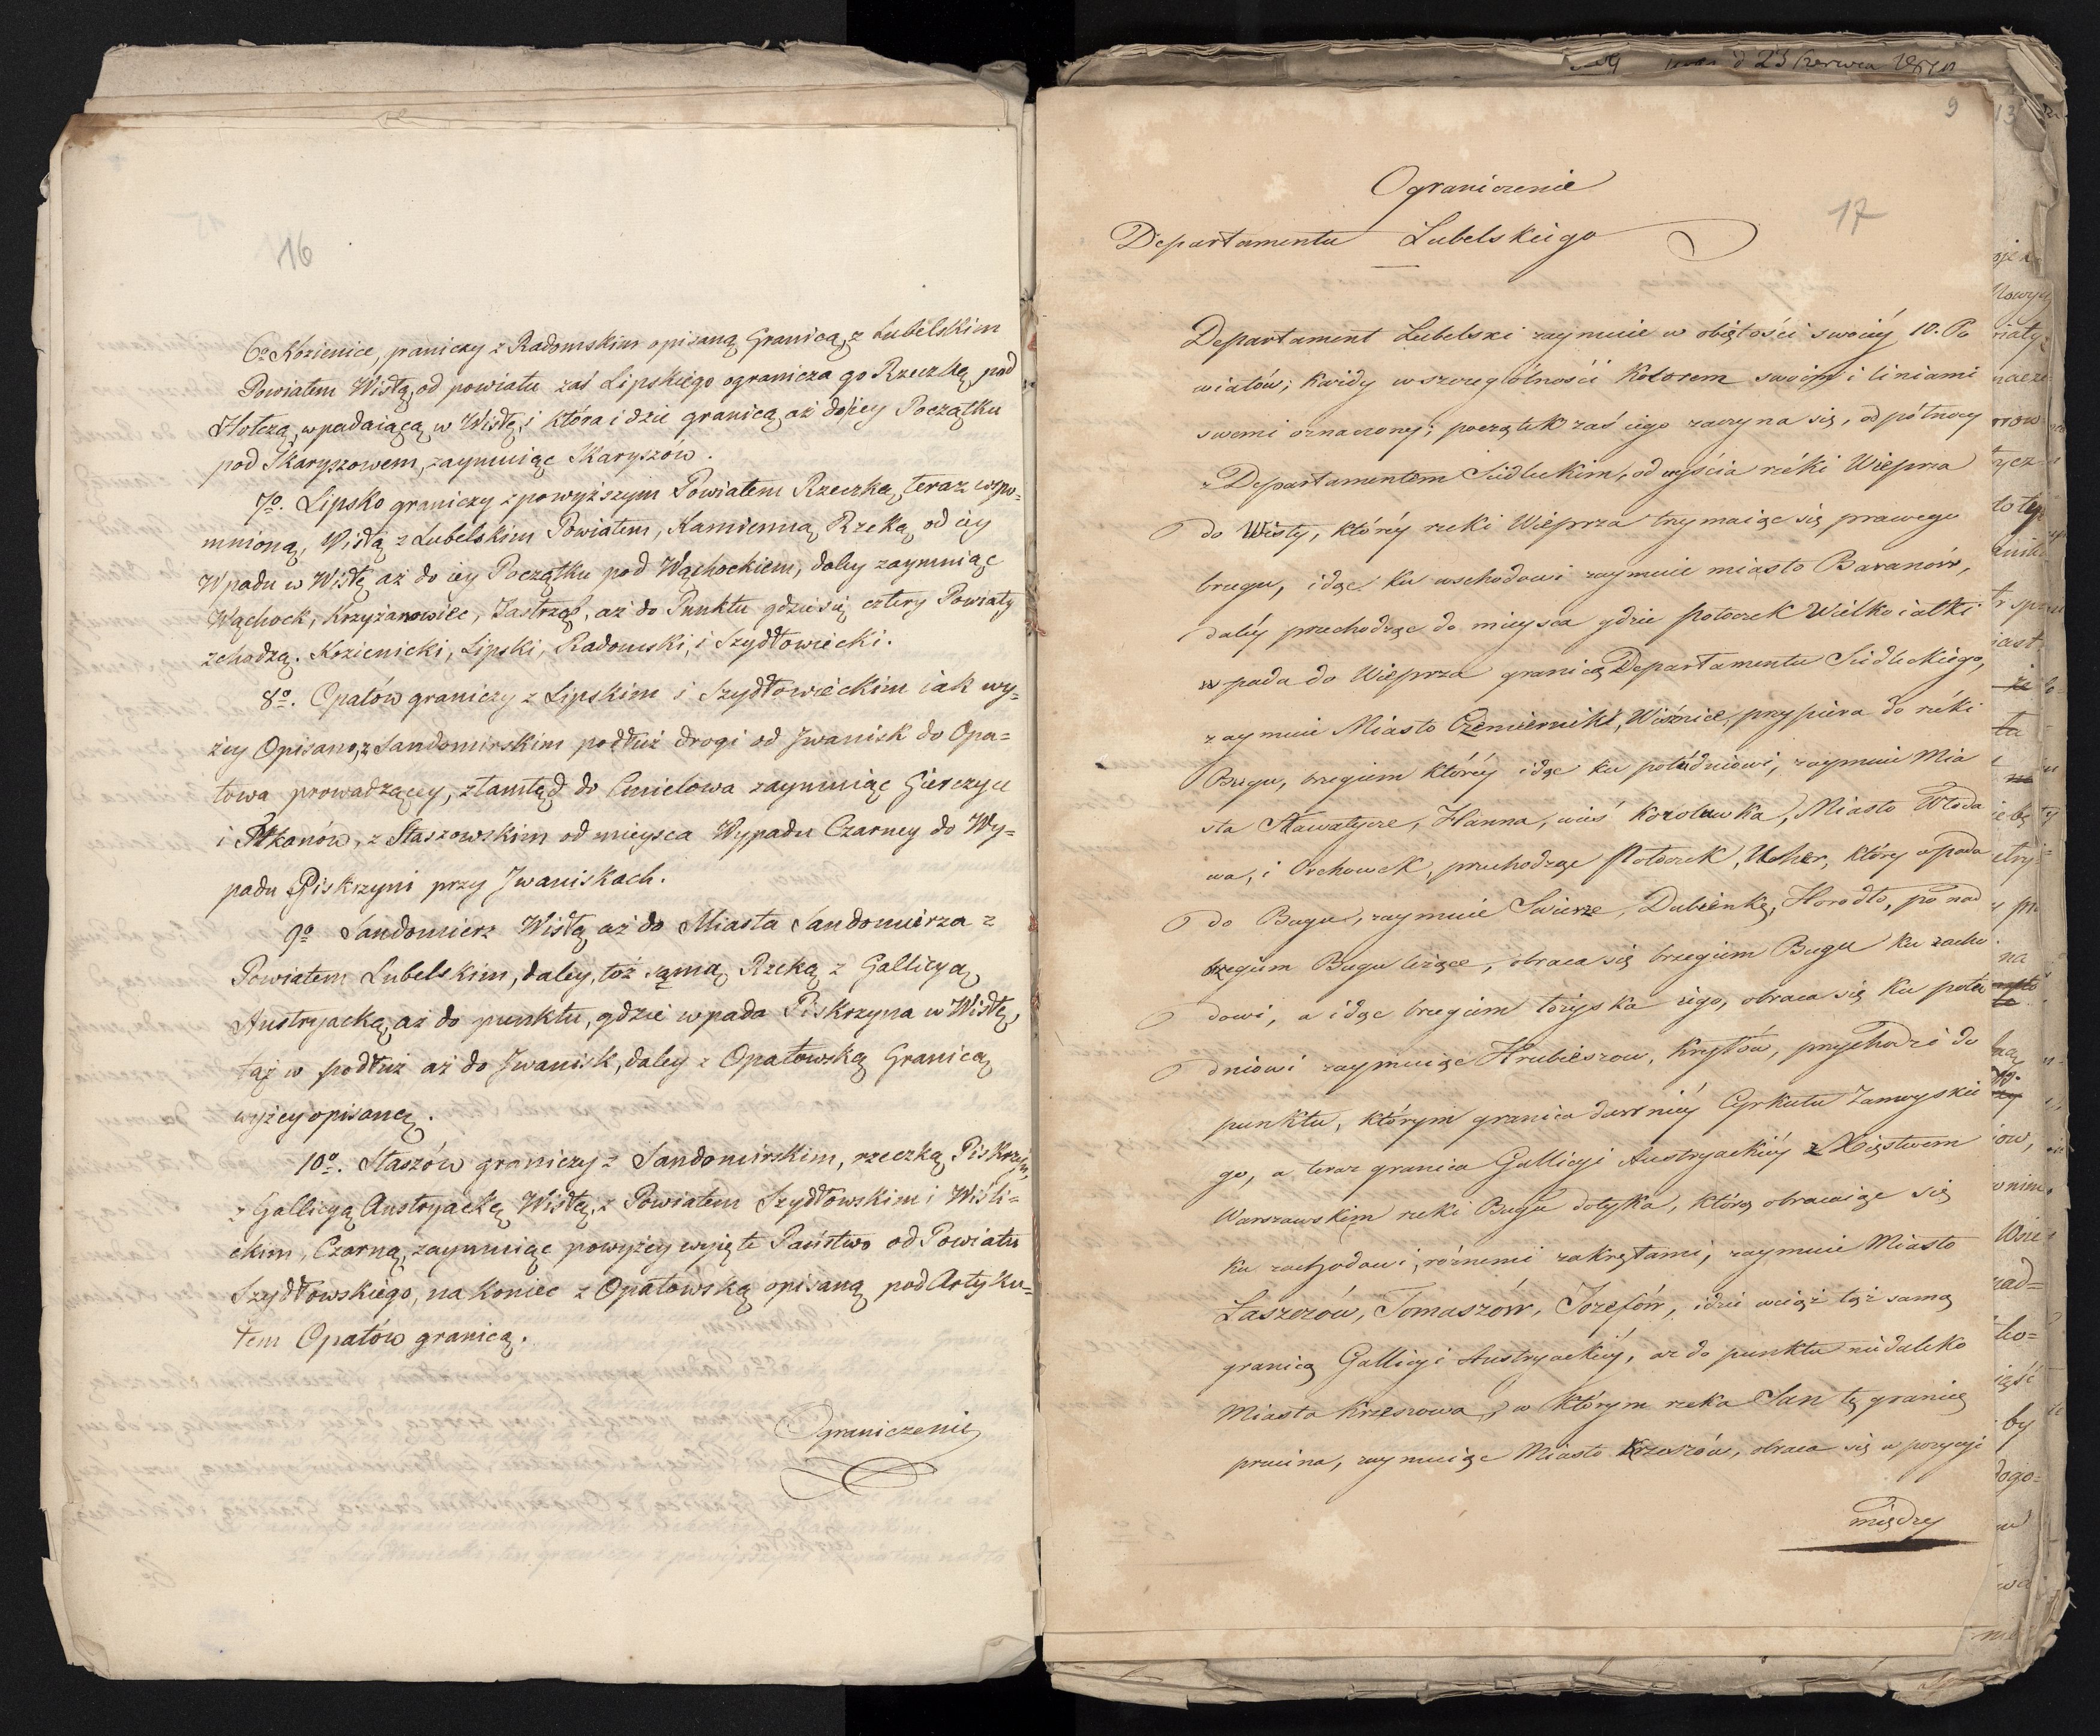 16
6º. Kozienice, graniczy z Radomskim opisaną Granicą, z Lubelskim
Powiatem Wisłą, od powiatu zaś Lipskiego ogranicza go Rzeczką pod
Hołczą, wpadaiącą w Wisłę, i która idzie granicą aż do iey Początku
pod Skaryszowem, zaymuiąc Skaryszow.
7º. Lipsko graniczy z powyższym Powiatem Rzeczką teraz wspo=
mnioną, Wisłą z Lubelskim Powiatem, Kamienną Rzeką od iey
Wpadu w Wisłę aż do iey Początku pod Wąchockiem, daley zaymuiąc
Wąchock, Krzyżanowiec, Jastrząb, aż do Punktu gdzie się cztery Powiaty
zchodzą. Kozienicki, Lipski, Radomski, i Szydłowiecki.
8º. Opatów graniczy z Lipskim i Szydłowieckim iak wy=
żey Opisano, z Sandomirskim podłuż drogi od Jwanisk do Opa=
towa prowadzącey, ztamtąd do Cmielowa zaymuiąc Gierczyce
i Ptkanów, z Staszowskim od mieysca Wypadu Czarney do Wy=
padu Piskrzyni przy Jwaniskach.
9º Sandomierz Wisłą aż do Miasta Sandomierza z
Powiatem Lubelskim, daley, toż samą Rzeką z Gallicyą
Austryacką, aż do punktu, gdzie wpada Piskrzyna w Wisłę,
tąż w podłuż aż do Jwanisk, daley z Opatowską Granicą
wyżey opisaną.
10º. Staszów graniczy z Sandomirskim, rzeczką Piskrzyn,
z Gallicyą Austryacką Wisłą, z Powiatem Szydłowskim i Wiśli=
ckim, Czarną, zaymuiąc powyżey wyięte Państwo od Powiatu
Szydłowskiego, na koniec z Opatowską opisaną pod Artyku=
łem Opatów granicą.
Ograniczenie
9
17
Ograniczenie
Departamentu Lubelskiego
Departament Lubelski zaymuie w obiętości swoiéy 10. Po
wiatów; każdy w szczególności Kolorem swoim i liniami
swemi oznaczony; początek zaś iego zaczyna się, od północy
z Departamentem Siedleckim, od uyścia rzéki Wieprza
do Wisły, któréy rzeki Wieprza trzymaiąc się prawego
brzegu, idąc ku wschodowi zaymuie miasto Baranów,
daléy przechodząc do mieysca gdzie potoczek Wielkoialki
wpada do Wieprza granicą Departamentu Siedleckiego,
zaymuie Miasto Czemierniki, Wisznice, przypiera do rzéki
Bugu, brzegiem któréy idąc ku południowi, zaymuie Mia
sta Sławatycze, Hanna, wieś Korolówka, Miasto Włoda
wa, i Orchowek, przechodząc Potoczek, Ucher, który wpada
do Bugu, zaymuie Swierze, Dubienkę, Horodło, po nad
brzegiem Bugu leżące, obraca się brzegiem Bugu ku zacho
dowi, a idąc brzegiem łożyska iego, obraca się ku połu
dniowi zaymuiąc Hrubieszow, Kryłów, przychodzi do
punktu, którym granica dawniéy Cyrkułu Zamoyskie
go, a teraz granica Gallicyi Austryackiéy z Xięstwem
Warszawskim rzeki Bugu dotyka, którą obracaiąc się
ku zachodowi, różnemi zakrętami, zaymuie Miasto
Łaszczów, Tomaszów, Józefów, idzie wciąż tąż samą
granicą Gallicyi Austryackiéy, aż do punktu niedaleko
Miasta Krzeszowa, w którym rzeka San tę granicę
przecina, zaymuiąc Miasto Krzeszów, obraca się w pozycyi
między